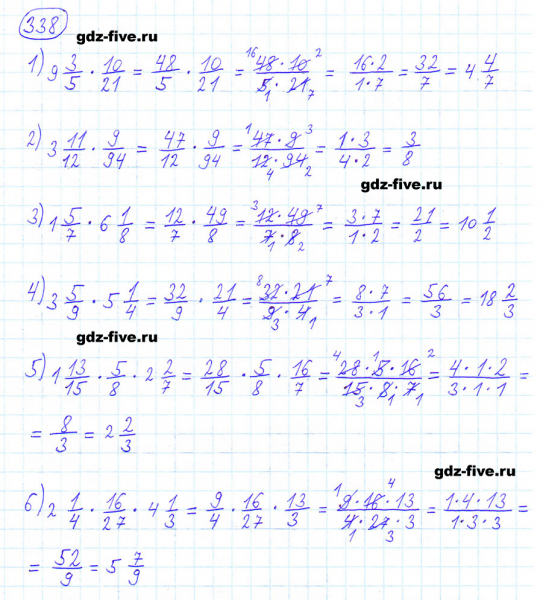 338
gdz-five.ru
1) 9 3/5 · 10/21 = 48/5 · 10/21 = 48·10/5·21 = 16·2/1·7 = 32/7 = 4 4/7
2) 3 11/12 · 9/94 = 47/12 · 9/94 = 47·9/12·94 = 1·3/4·2 = 3/8
gdz-five.ru
3) 1 5/7 · 6 1/8 = 12/7 · 49/8 = 12·49/7·8 = 3·7/1·2 = 21/2 = 10 1/2
4) 3 5/9 · 5 1/4 = 32/9 · 21/4 = 32·21/9·4 = 8·7/3·1 = 56/3 = 18 2/3
gdz-five.ru
5) 1 13/15 · 5/8 · 2 2/7 = 28/15 · 5/8 · 16/7 = 28·5·16/15·8·7 = 4·1·2/3·1·1 =
= 8/3 = 2 2/3
gdz-five.ru
6) 2 1/4 · 16/27 · 4 1/3 = 9/4 · 16/27 · 13/3 = 9·16·13/4·27·3 = 1·4·13/1·3·3 =
= 52/9 = 5 7/9